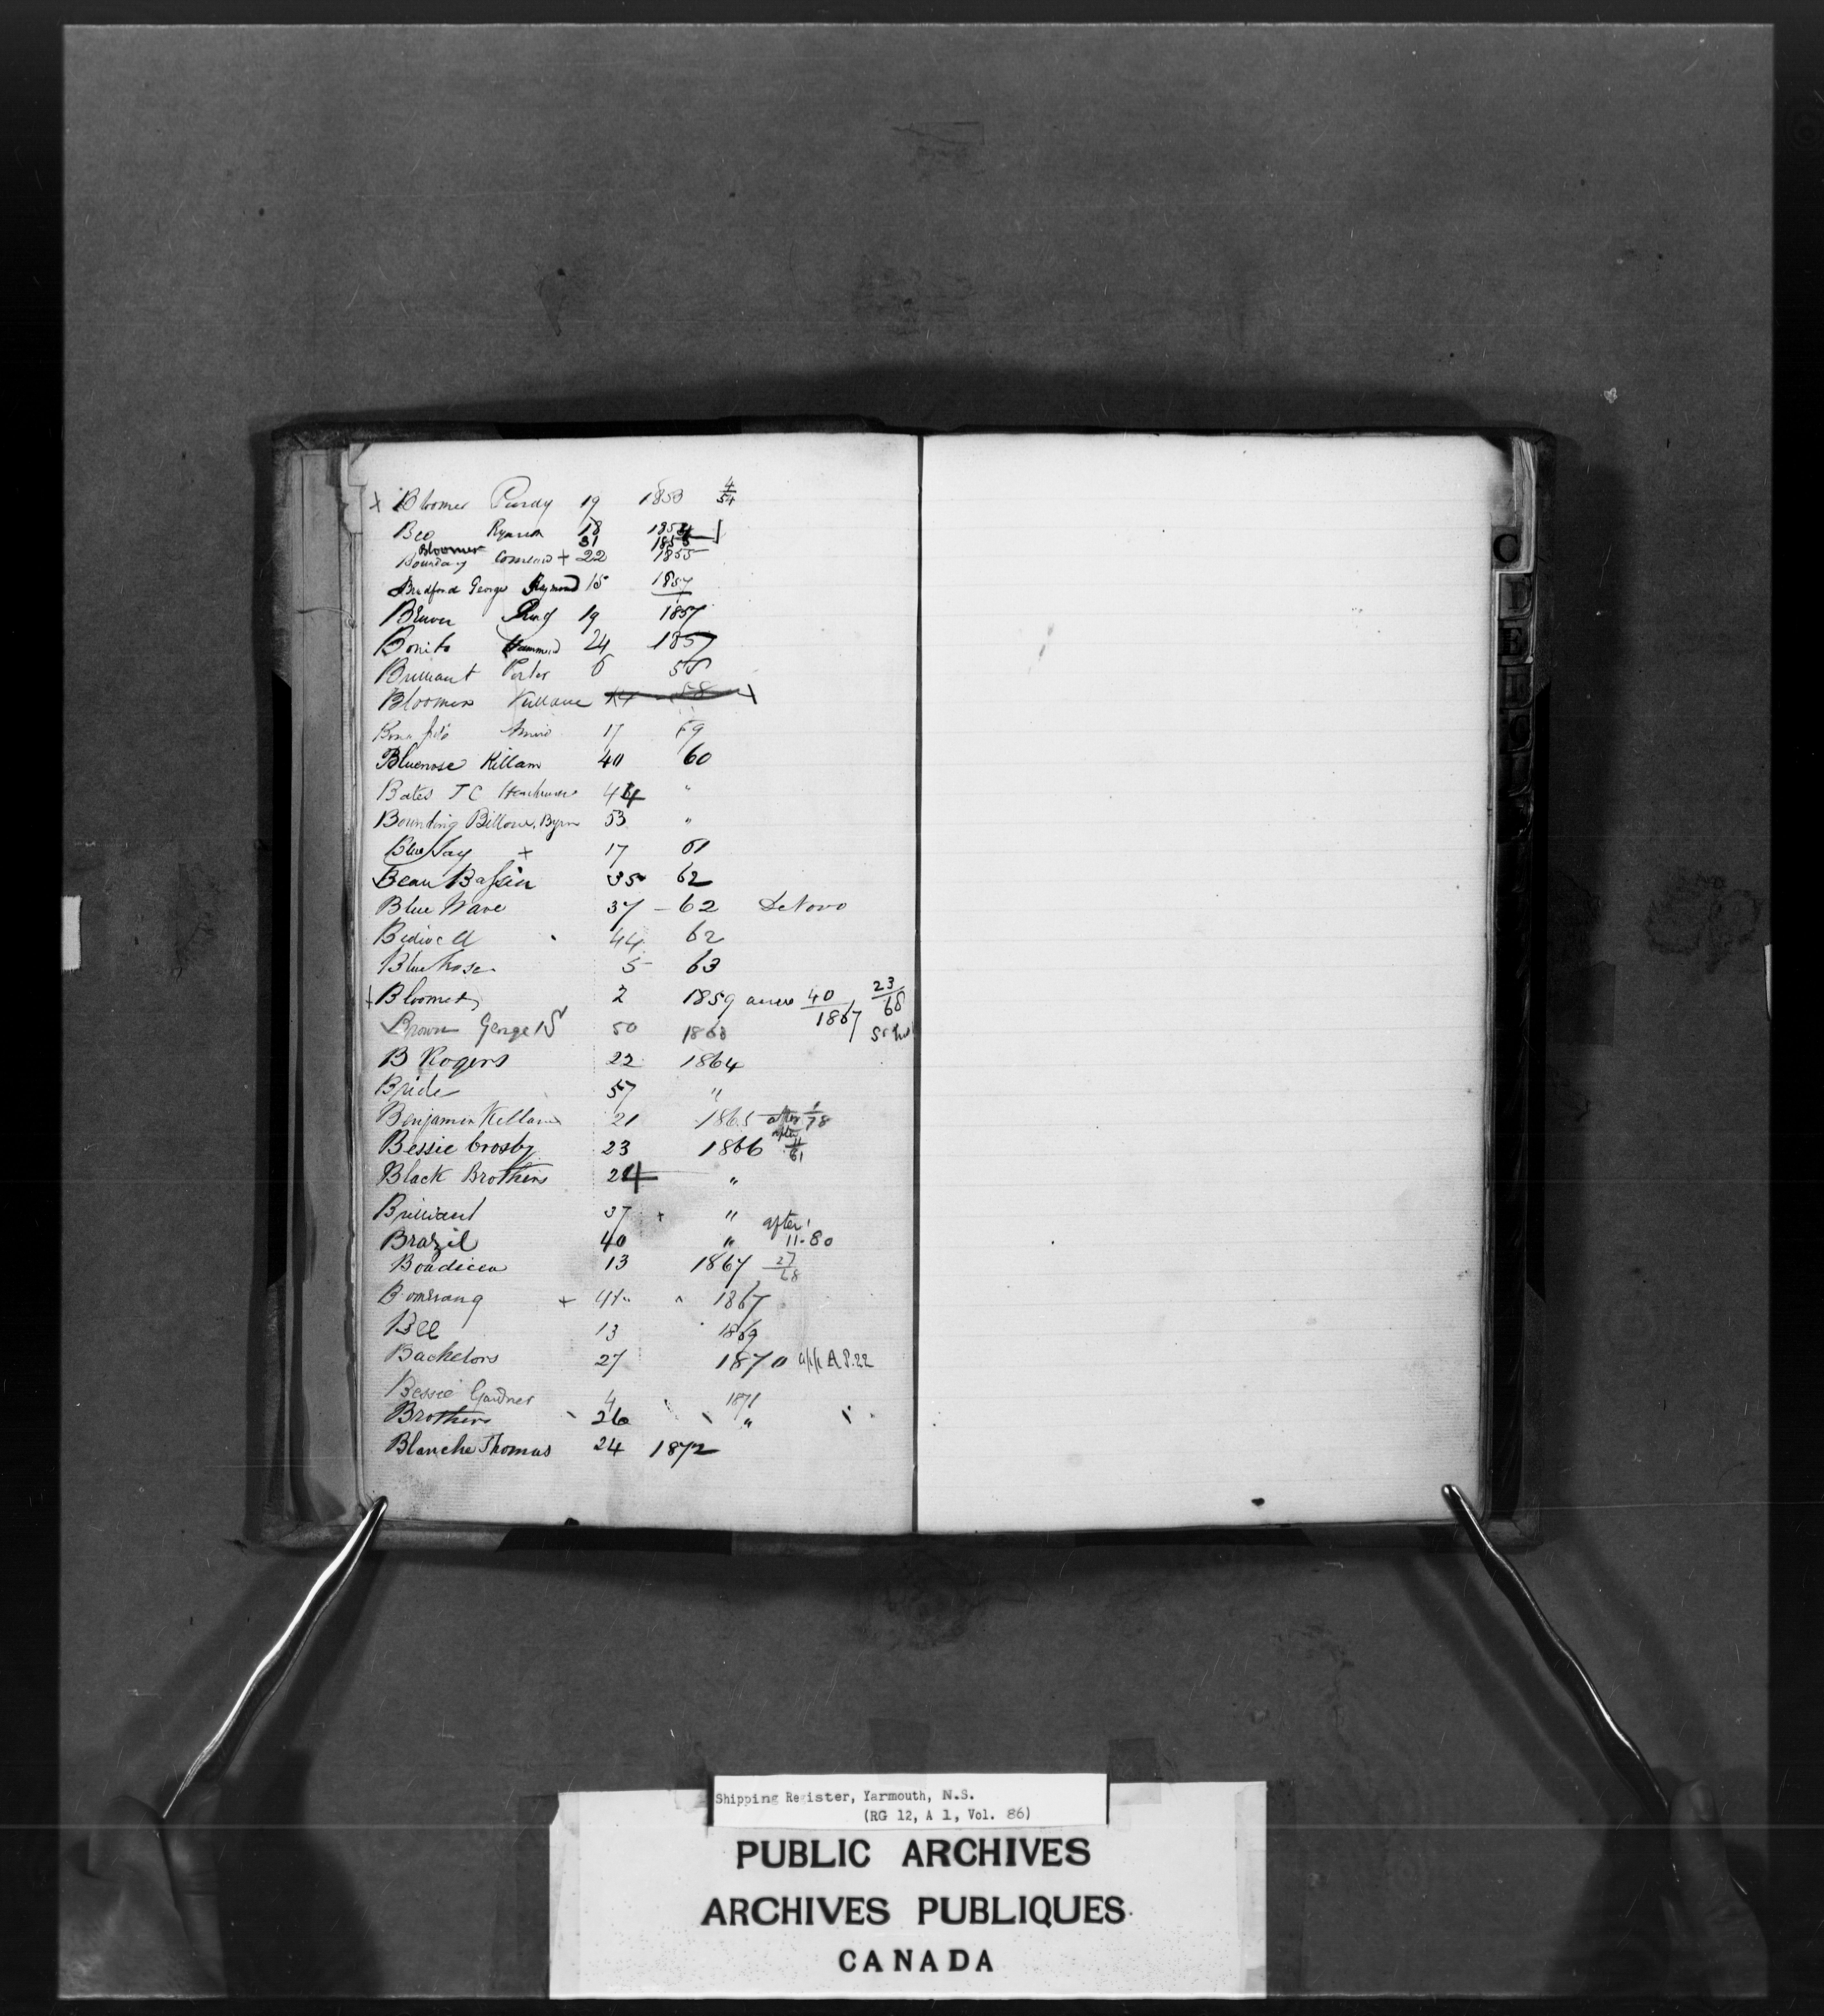 + Bloomer Purdy 19 1853 4/54
Bee Ryerson 18 1854
Bloomer 31 1855
Boundary + 22 1855
Bradford George Raymond 15 1857
Ring 19 1857
Bonito Hammond 24 1857
Brilliant Porter 6 58
Bloomer Killam 58
Bona fide 17 59
Bluenose Killam 40 60
Bates T C 44 "
Bounding Billow. Byrn 53 "
Blue Jay + 17 61
Beau Bassin 35 62
Blue Wave 37 - 62 De Novo
44 62
Blue Nose 5 63
+ Bloomer 2 1859 anew 40/1867 23/68
Brown George S 50 1863
B Rogers 22 1864
Bride 57 "
Benjamin Killam 21 1865 after 1/78
Bessie Crosby 23 1866 after 11/61
Black Brothers 24 "
Brilliant 37 + "
Brazil 40 " after 11.80
Boadicea 13 1867 27/68
Bomerang + 1867
Bee 13 1869
Bachelors 27 1870 app A P.22
Bessie Gardner 4 1871
Brothers 26 "
Blanche Thomas 24 1872
C
D
E
Shipping Register, Yarmouth, N.S.
(RG 12, A 1, Vol. 86)
PUBLIC ARCHIVES
ARCHIVES PUBLIQUES
CANADA